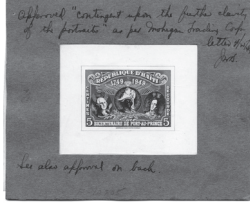 Approved "contingent upon the further clarity
of the portraits" as per Mohegan Trading Corp.
letter
REPUBLIQUE D'HAITI
1749 1949
5 5
BICENTENAIRE DE PORT-AU-PRINCE
See also approval on back.